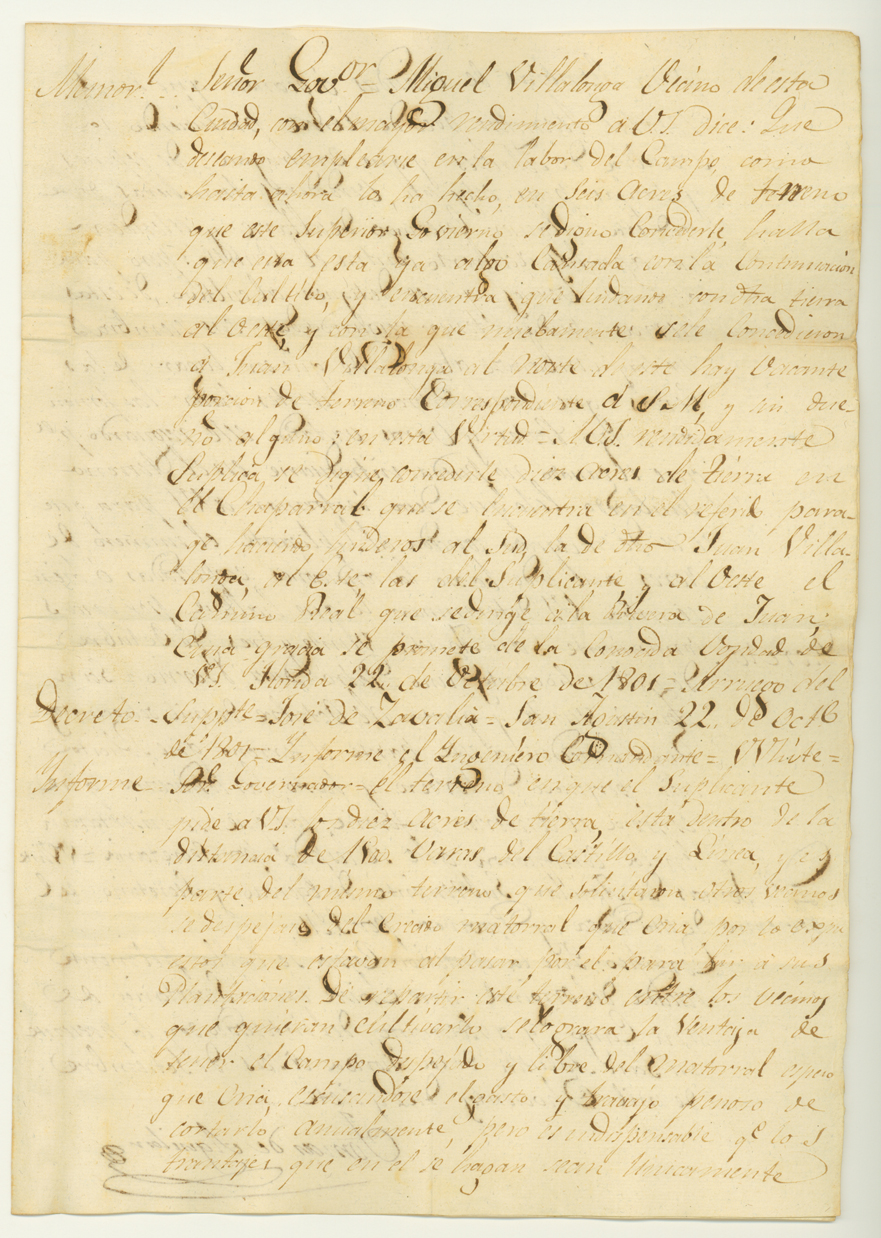 Memor.l Señor Gov.or = Miguel Villalonga Vecino de esta
Ciudad, con el mayor rendimiento a VS. dice: Que
deseando emplearse en la labor del Campo como
hasta ahora lo ha hecho, en seis acres de terreno
que este Superior Govierno se digno Concederle halla
que esta ya algo Cansada con la Continuacion
del Cultibo, y encuentra que lindando con dha tierra
al Oeste, y con la que nuebamente se le Concedieron
a Juan Villalonga al norte de este hay vacante
porcion de terreno Correspondiente a S.M, y sin due-
ño alguno: en esta Virtud = A VS. rendidamente
Suplica se digne concederle diez acres de tierra en
el Chaparral que se encuentra en el referido para-
ge haciendo linderos al Sud, la de dho Juan Villa-
longa, al Este las del Suplicante y al Oeste el
Camino Real que se dirije a la de Juan,
Cuia gracia se promete de la Conocida Vondad de
VS. Florida 22 de Octubre de 1801 = Arruego del
Decreto - Sup.te = José de Zavalia = San Agustin 22 de Octe
de 1801 = Informe el Ingeniero Comandante = White =
Informe - S.or Governador = el terreno en que el Suplicante
pide a VS. los diez acres de tierra, está dentro de la
distancia de 1800 Varas del Castillo y Linea, y es
parte del mismo terreno que solicitaron otros vecinos
se despejase del crecido matorral que cria por lo expu
estos que estavan al pasar por el para ir a sus
Plantaciones. De repartir este terreno entre los vecinos
que quieran cultivarlo se lograra la ventaja de
tener el Campo despejado y libre del matorral espeso
que cria, escusandose el gasto y travajo penoso de
cortarlo anualmente, pero es indispensable q.e lo s
travajos que en el se hagan sean unicamente